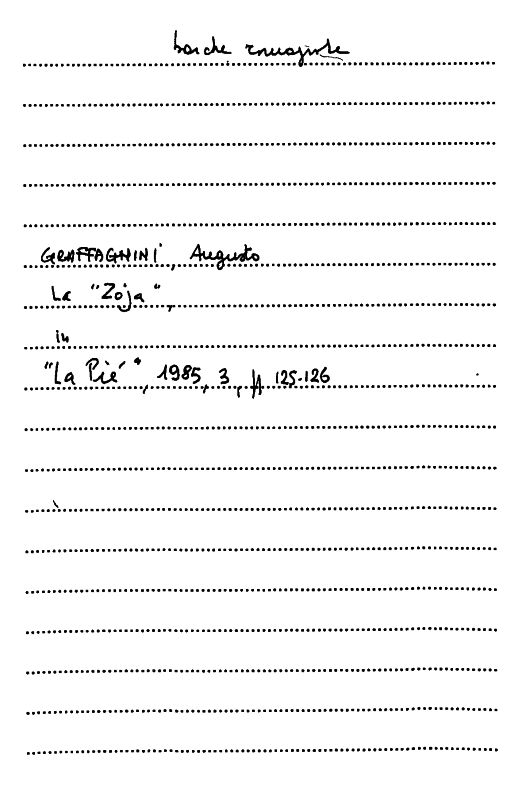 barche romagnole
GRAFFAGNINI, Augusto
La "Zoja",
in
"La Piê", 1985, 3, pp 125-126